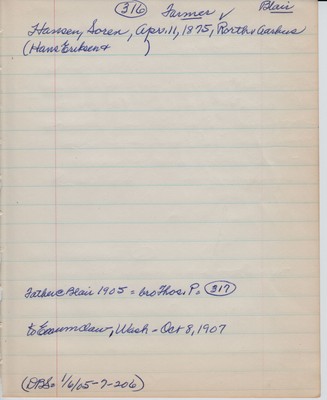 316 Farmer ✓ Blair
Hansen, Soren, Apr. 11, 1875, Rorth & Aarhus
(Hans Eriksen & )
Father @ Blair 1905 = bro Thos. P. = 317
to Enumclaw, Wash - Oct 8, 1907
(DBS = 1/6/05-7-206)